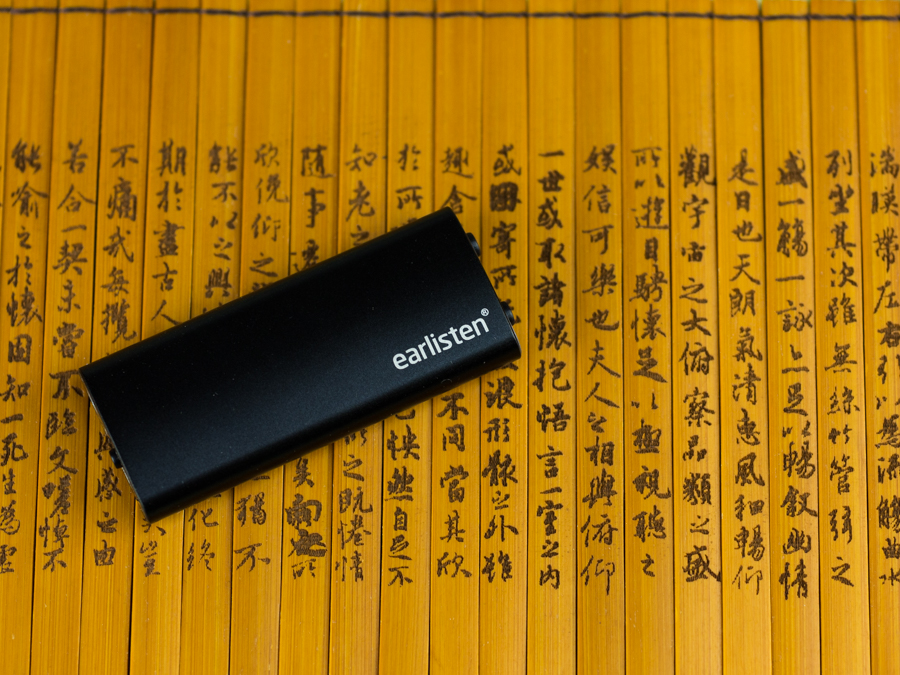 湍暎帶左右引以為流觴曲水
列坐其次雖無絲竹管弦之
盛一觴一詠亦足以暢敘幽情
是日也天朗氣清惠風和暢仰
觀宇宙之大俯察品類之盛
所以遊目騁懷足以極視聽之
娛信可樂也夫人之相與俯仰
一世或取諸懷抱悟言一室之內
或因寄所浪形骸之外雖
趣舍不同當其欣
於所己怏然自足不
知老之之既惓情
隨事遷矣向之所
欣俛仰之猶不
能不以之興化終
期於盡古人豈
不痛哉每攬感之由
若合一契未嘗不臨文嗟悼不
能喻之於懷固知一死生為虛
earlisten®